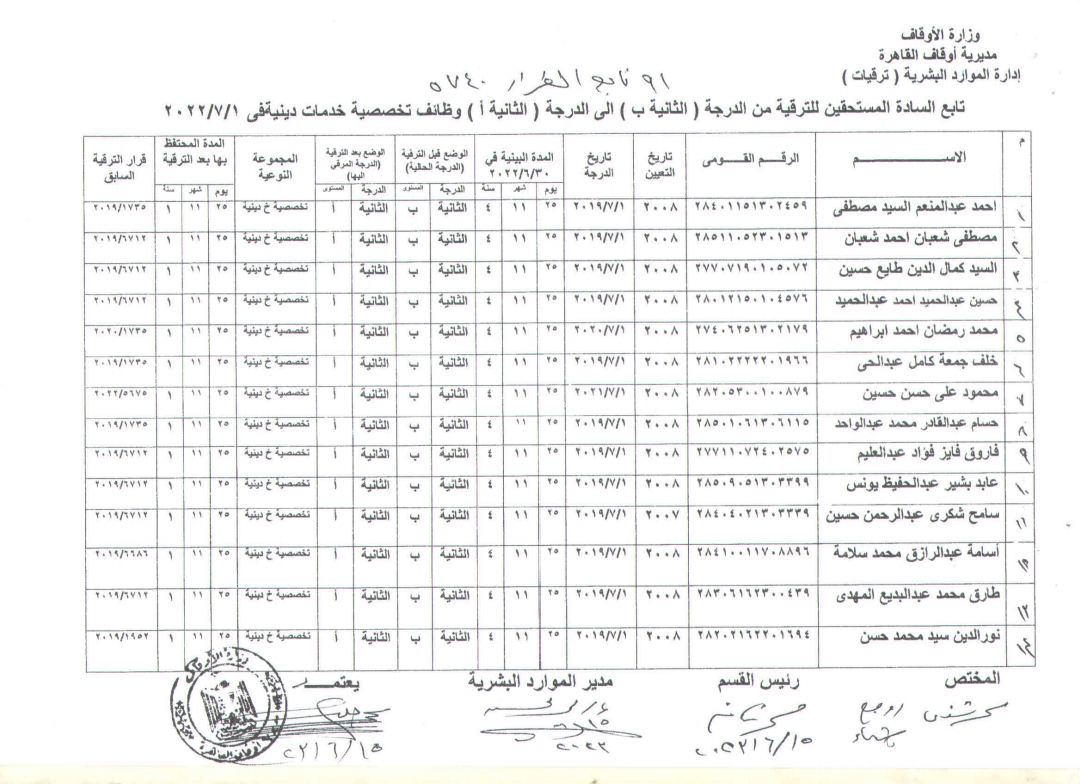 وزارة الأوقاف
مديرية أوقاف القاهرة
إدارة الموارد البشرية ( ترقيات )
٩١ تابع القرار ٥٧٤٠
تابع السادة المستحقين للترقية من الدرجة ( الثانية ب ) الى الدرجة ( الثانية أ ) وظائف تخصصية خدمات دينيةفى ٢٠٢٢/٧/١
م الاســـم الرقم القومى تاريخ التعيين تاريخ الدرجة المدة البينية في ٢٠٢٢/٦/٣٠ الوضع قبل الترقية (الدرجة الحالية) الوضع بعد الترقية (الدرجة المرقي اليها) المجموعة النوعية المدة المحتفظ بها بعد الترقية قرار الترقية السابق
يوم شهر سنة الدرجة المستوى الدرجة المستوى يوم شهر سنة
١ احمد عبدالمنعم السيد مصطفى ٢٨٤٠١١٥١٣٠٢٤٥٩ ٢٠٠٨ ٢٠١٩/٧/١ ٢٥ ١١ ٤ الثانية ب الثانية أ تخصصية خ دينية ٢٥ ١١ ١ ٢٠١٩/١٧٣٥
٢ مصطفى شعبان احمد شعبان ٢٨٥١١٠٥٢٣٠١٥١٣ ٢٠٠٨ ٢٠١٩/٧/١ ٢٥ ١١ ٤ الثانية ب الثانية أ تخصصية خ دينية ٢٥ ١١ ١ ٢٠١٩/٦٧١٢
٣ السيد كمال الدين طايع حسين ٢٧٧٠٧١٩٠١٠٥٠٧٢ ٢٠٠٨ ٢٠١٩/٧/١ ٢٥ ١١ ٤ الثانية ب الثانية أ تخصصية خ دينية ٢٥ ١١ ١ ٢٠١٩/٦٧١٢
٤ حسين عبدالحميد احمد عبدالحميد ٢٨٠١٢١٥٠١٠٤٥٧٦ ٢٠٠٨ ٢٠١٩/٧/١ ٢٥ ١١ ٤ الثانية ب الثانية أ تخصصية خ دينية ٢٥ ١١ ١ ٢٠١٩/٦٧١٢
٥ محمد رمضان احمد ابراهيم ٢٧٤٠٦٢٥١٣٠٢١٧٩ ٢٠٠٨ ٢٠٢٠/٧/١ ٢٥ ١١ ٤ الثانية ب الثانية أ تخصصية خ دينية ٢٥ ١١ ١ ٢٠٢٠/١٧٣٥
٦ خلف جمعة كامل عبدالحى ٢٨١٠٢٢٢٢٢٠١٩٦٦ ٢٠٠٨ ٢٠١٩/٧/١ ٢٥ ١١ ٤ الثانية ب الثانية أ تخصصية خ دينية ٢٥ ١١ ١ ٢٠١٩/٦٧١٢
٧ محمود على حسن حسين ٢٨٢٠٥٣٠٠١٠٠٨٧٩ ٢٠٠٨ ٢٠٢١/٧/١ ٢٥ ١١ ٤ الثانية ب الثانية أ تخصصية خ دينية ٢٥ ١١ ١ ٢٠٢٢/٥٦٧٥
٨ حسام عبدالقادر محمد عبدالواحد ٢٨٥٠١٠٦١٣٠٦١١٥ ٢٠٠٨ ٢٠١٩/٧/١ ٢٥ ١١ ٤ الثانية ب الثانية أ تخصصية خ دينية ٢٥ ١١ ١ ٢٠١٩/١٧٣٥
٩ فاروق فايز فؤاد عبدالعليم ٢٧٧١١٠٧٢٤٠٢٥٧٥ ٢٠٠٨ ٢٠١٩/٧/١ ٢٥ ١١ ٤ الثانية ب الثانية أ تخصصية خ دينية ٢٥ ١١ ١ ٢٠١٩/٦٧١٢
١٠ عابد بشير عبدالحفيظ يونس ٢٨٥٠٩٠٥١٣٠٣٣٩٩ ٢٠٠٨ ٢٠١٩/٧/١ ٢٥ ١١ ٤ الثانية ب الثانية أ تخصصية خ دينية ٢٥ ١١ ١ ٢٠١٩/٦٧١٢
١١ سامح شكرى عبدالرحمن حسين ٢٨٤٠٤٠٢١٣٠٣٣٣٩ ٢٠٠٧ ٢٠١٩/٧/١ ٢٥ ١١ ٤ الثانية ب الثانية أ تخصصية خ دينية ٢٥ ١١ ١ ٢٠١٩/٦٧١٢
١٢ أسامة عبدالرازق محمد سلامة ٢٨٤١٠٠١١٧٠٨٨٩٦ ٢٠٠٨ ٢٠١٩/٧/١ ٢٥ ١١ ٤ الثانية ب الثانية أ تخصصية خ دينية ٢٥ ١١ ١ ٢٠١٩/٦٦٨٦
١٣ طارق محمد عبدالبديع المهدى ٢٨٣٠٦١٦٢٣٠٠٤٣٩ ٢٠٠٨ ٢٠١٩/٧/١ ٢٥ ١١ ٤ الثانية ب الثانية أ تخصصية خ دينية ٢٥ ١١ ١ ٢٠١٩/٦٧١٢
١٤ نورالدين سيد محمد حسن ٢٨٢٠٢١٦٢٢٠١٦٩٤ ٢٠٠٨ ٢٠١٩/٧/١ ٢٥ ١١ ٤ الثانية ب الثانية أ تخصصية خ دينية ٢٥ ١١ ١ ٢٠١٩/١٩٥٢
المختص رئيس القسم مدير الموارد البشرية يعتمـــد